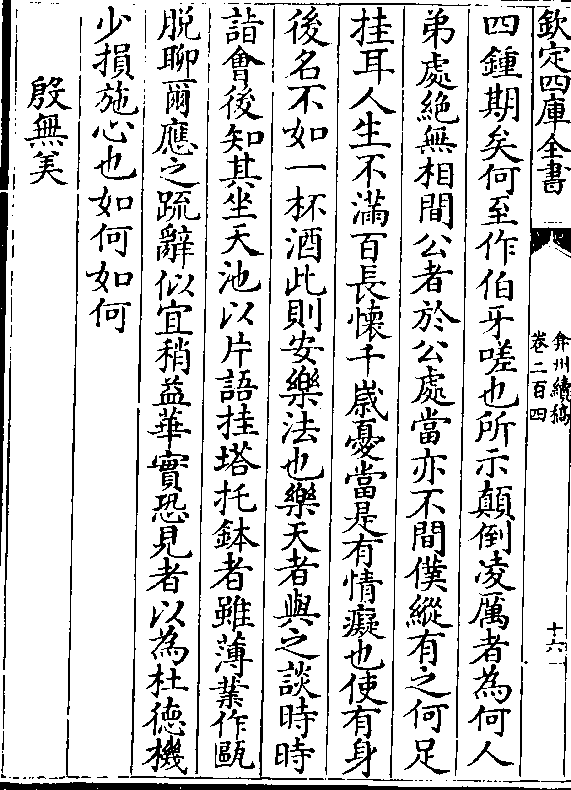 欽定四庫全書
弇州續稿
卷二百四
十六
四鍾期矣何至作伯牙嗟也所示顛倒凌厲者為何人
弟處絶無相間公者於公處當亦不間僕縱有之何足
挂耳人生不滿百長懷千嵗憂當是有情癡也使有身
後名不如一杯酒此則安樂法也樂天者與之談時時
詣會後知其坐天池以片語挂塔托鉢者雖薄業作甌
脱聊爾應之疏辭似宜稍益華實恐見者以為杜德機
少損施心也如何如何
殷無美